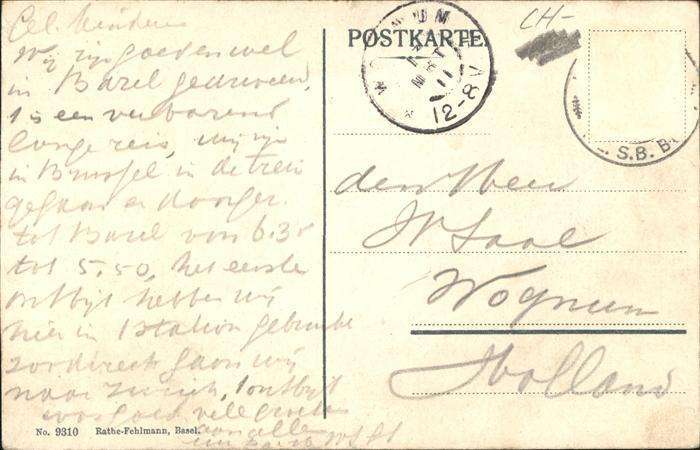 Gel. Kinderen
Wij zijn goed en wel
in Basel gearriveerd,
't is een verbazend
lange reis, wij zijn
in Brussel in de trein
gegaan en
tot Basel van 6.35
tot 5.50, het eerste
ontbijt hebben wij
hier in 't station gebruikt
zoo direct gaan wij
naar Zurich, 't ontbijt
was goed, vele groeten
aan allen
POSTKARTE.
CH-
UM
MRT
11
12-8V
S.B.B.
den Heer
W Saal
Wognum
Holland
No. 9310 Rathe-Fehlmann, Basel.